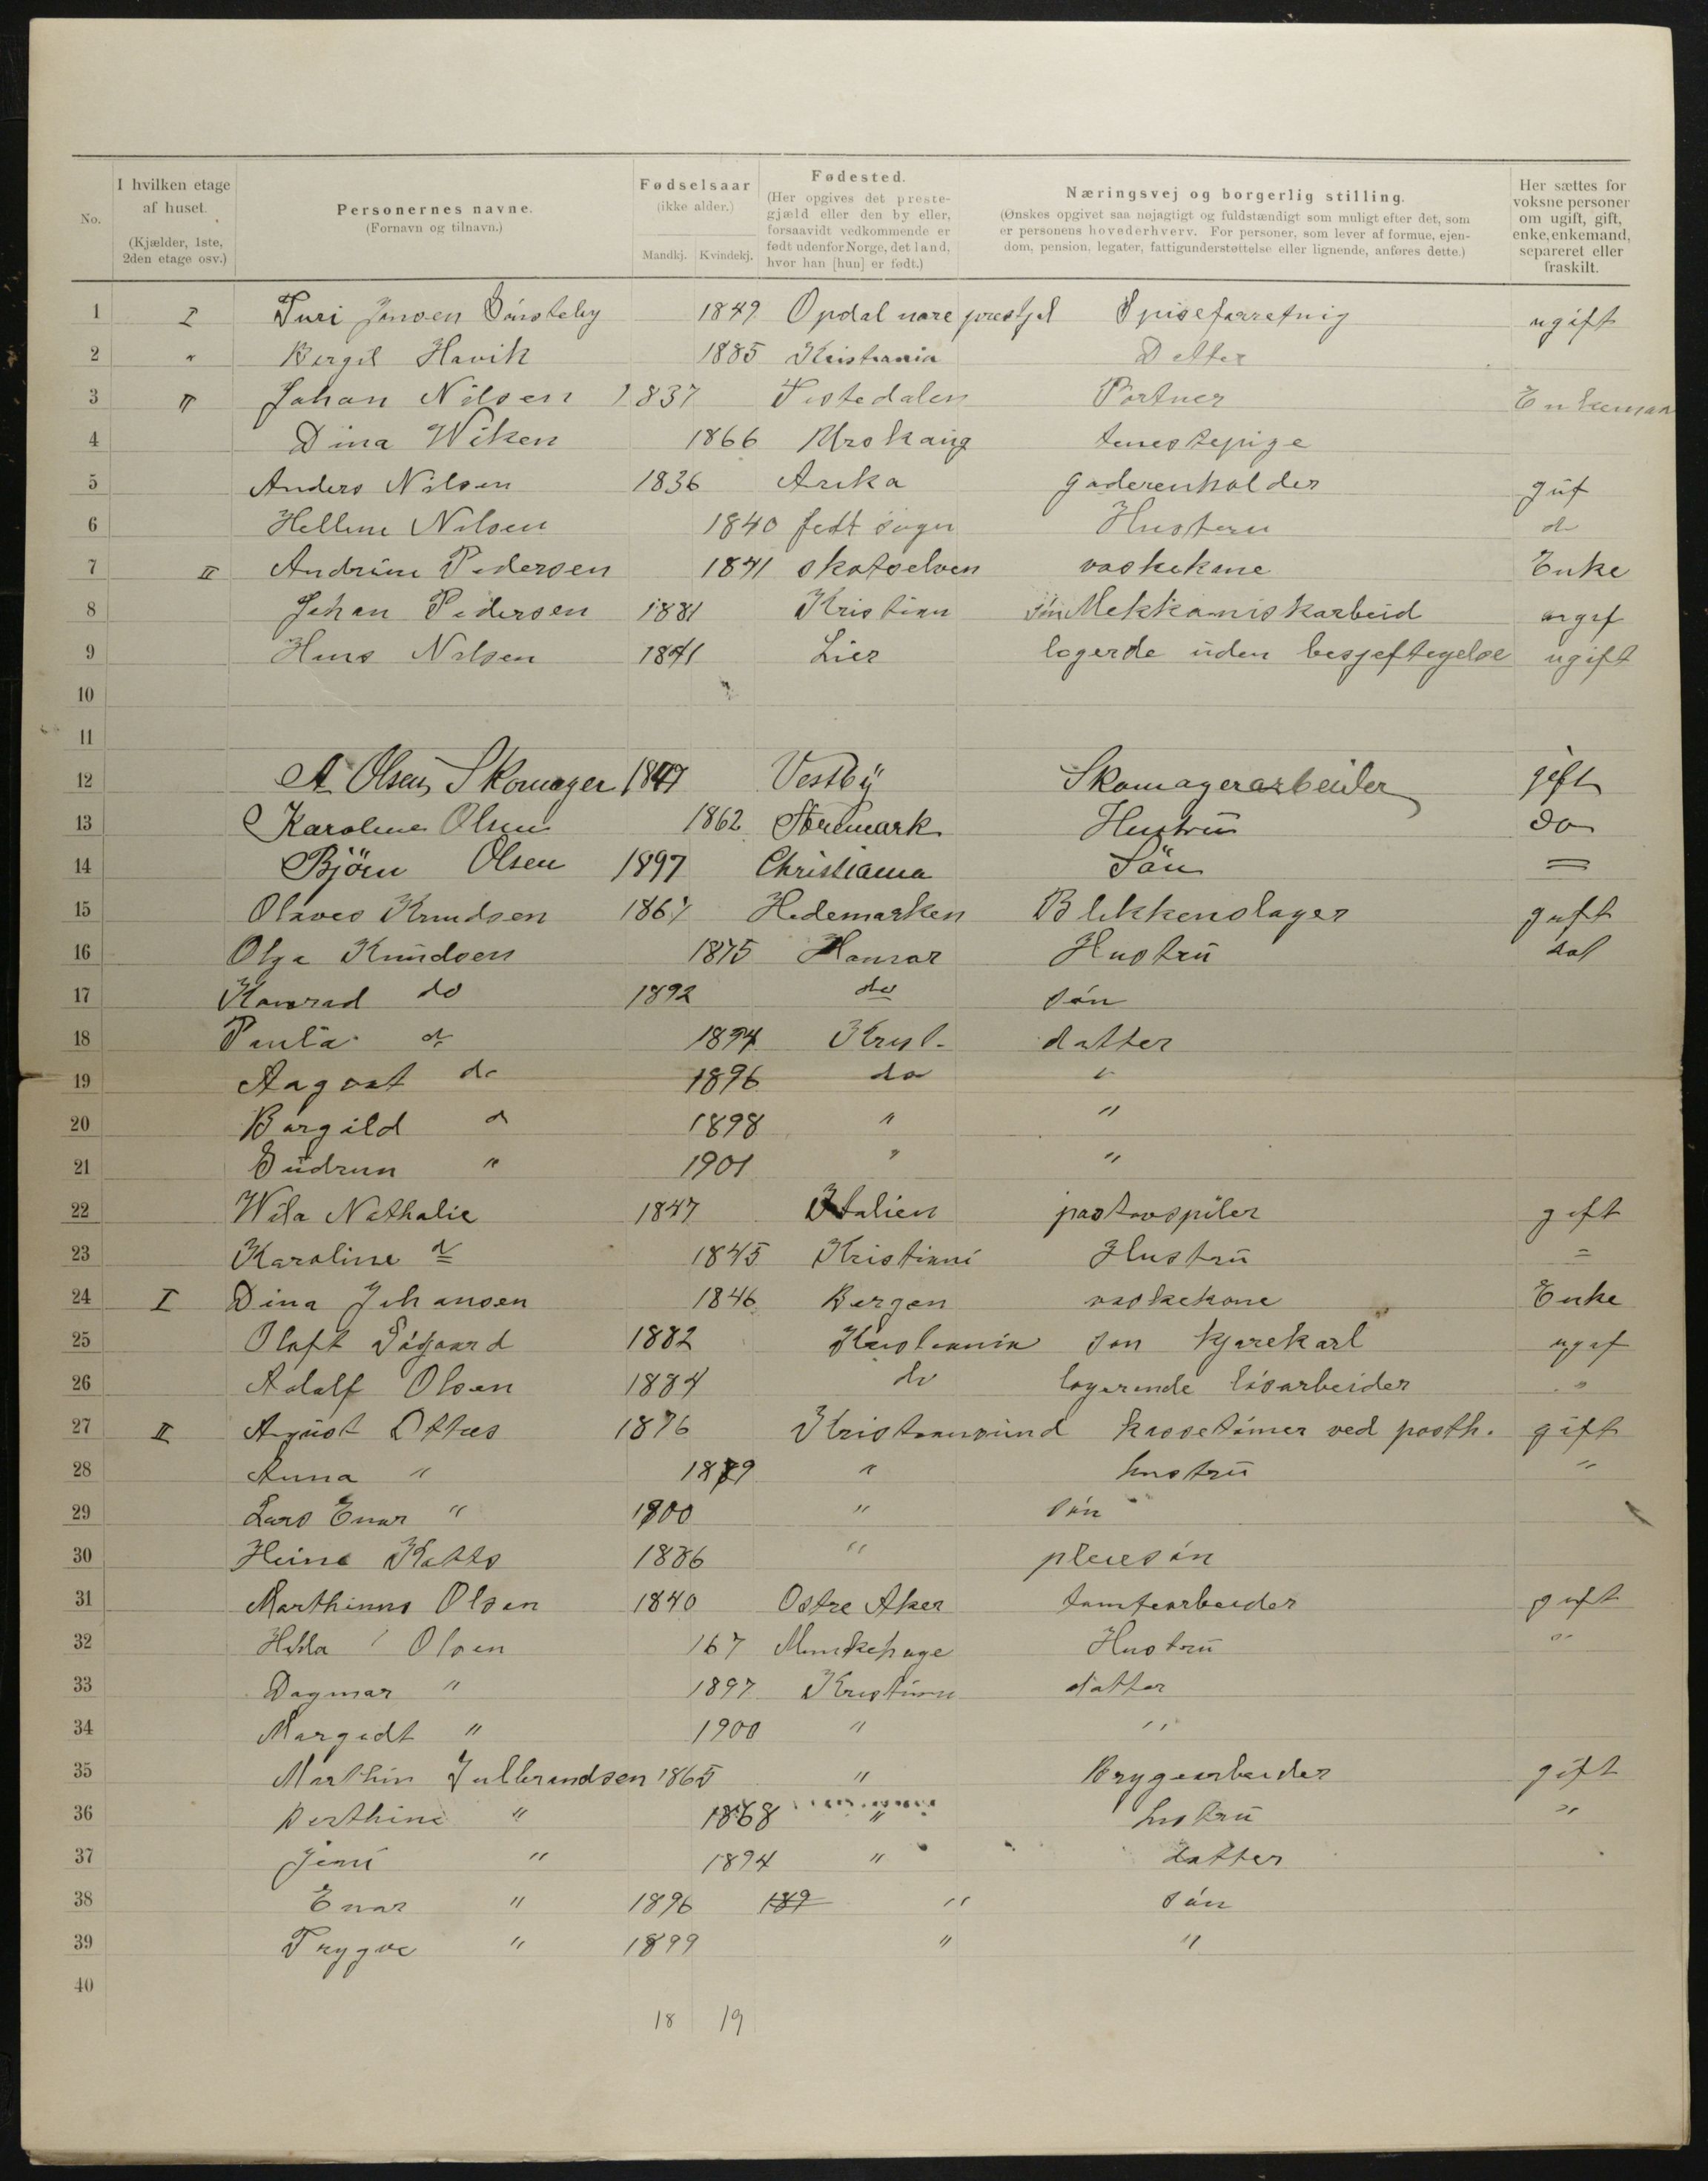 No. I hvilken etage af huset. (Kjælder, 1ste, 2den etage osv.) Personernes navne. (Fornavn og tilnavn.) Fødselsaar (ikke alder.) Mandkj. Kvindekj. Fødested. (Her opgives det prestegjæld eller den by eller, forsaavidt vedkommende er født udenfor Norge, det land, hvor han [hun] er født.) Næringsvej og borgerlig stilling. (Ønskes opgivet saa nøjagtigt og fuldstændigt som muligt efter det, som er personens hovederhverv. For personer, som lever af formue, ejendom, pension, legater, fattigunderstøttelse eller lignende, anføres dette.) Her sættes for voksne personer om ugift, gift, enke, enkemand, separeret eller fraskilt.
1 I Turi Jonsen Sönsteby 1849 Opdal nore prestjel Spiseforretnig ugift
2 " Bergit Havik 1885 Kristiania Detter
3 II Johan Nilsen 1837 Tistedalen Portner Enkeman
4 Dina Wiken 1866 Urskaug tenestepige
5 Anders Nilsen 1836 gift
6 Hellene Nilsen 1840 fedt sogn Husteru do
7 II Andrine Pedersen 1841 skotselven vaskekone Enke
8 Johan Pedersen 1881 Kristian sön Mekkaniskarbeid ugif
9 Hans Nilsen 1841 Lier logerde uden besjeftegelse ugift
10
11
12 A. Olsen, Skomager 1847 Vestby Skomagerarbeider jift
13 Karoline Olsen 1862 Aremark Hustru do
14 Björn Olsen 1897 Christiania Sön =
15 Olaves Knudsen 1867 Hedemarken Blikkenslager gift
16 Olga Knudsen 1875 Hamar Hustru
17 Konrad do 1892 do sön
18 Paula do 1894 Krist. datter
19 Aagoat do 1896 do "
20 Borgild do 1898 " "
21 Gudrun " 1901 " "
22 Wila Nathalie 1847 Italien gift
23 Karoline do 1845 Kristiani Hustru =
24 I Dina Johansen 1846 Bergen vaskekone Enke
25 Olaft 1882 Kristiania son kjørekarl ugif
26 Adolf Olsen 1884 do logerende lösarbeider "
27 II August Ottes 1876 Kristiansund kassetömer ved posth. gift
28 Anna " 1879 " hustru "
29 Lars Enar " 1900 " sön
30 Heine Katts 1886 " pleiesön
31 Marthinus Olsen 1840 Ostre Aker tomtearbeider gift
32 Hilda Olsen 167 Hustru "
33 Dagmar " 1897 Kristian datter
34 Margedt " 1900 " "
35 Marthin Gulbrandsen 1865 " Brygearbeider gift
36 Berthine " 1868 " hustru "
37 Jeni " 1894 " datter
38 Enar " 1896 189 " sön
39 Trygve " 1899 " "
40
18 19